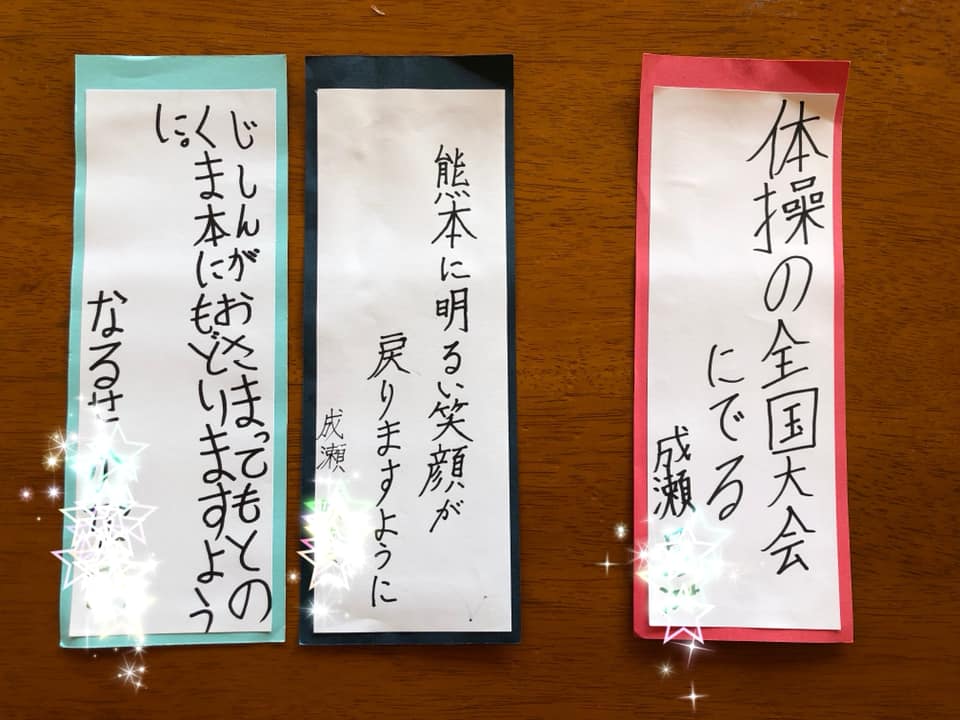 体操の全国大会
にでる
成瀬
熊本に明るい笑顔が
戻りますように
成瀬
じしんがおさまってもとの
くま本にもどりますよう
に。
なるせ